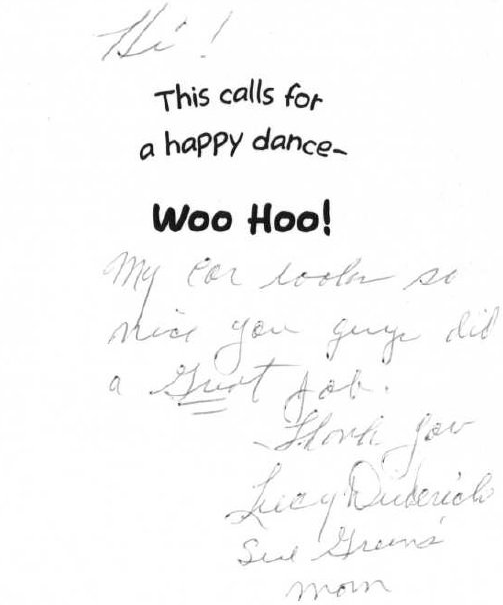 Hi!
This calls for
a happy dance–
Woo Hoo!
My car looks so
nice you guys did
a Great job.
Thank You
Lucy
Sue Green's
mom